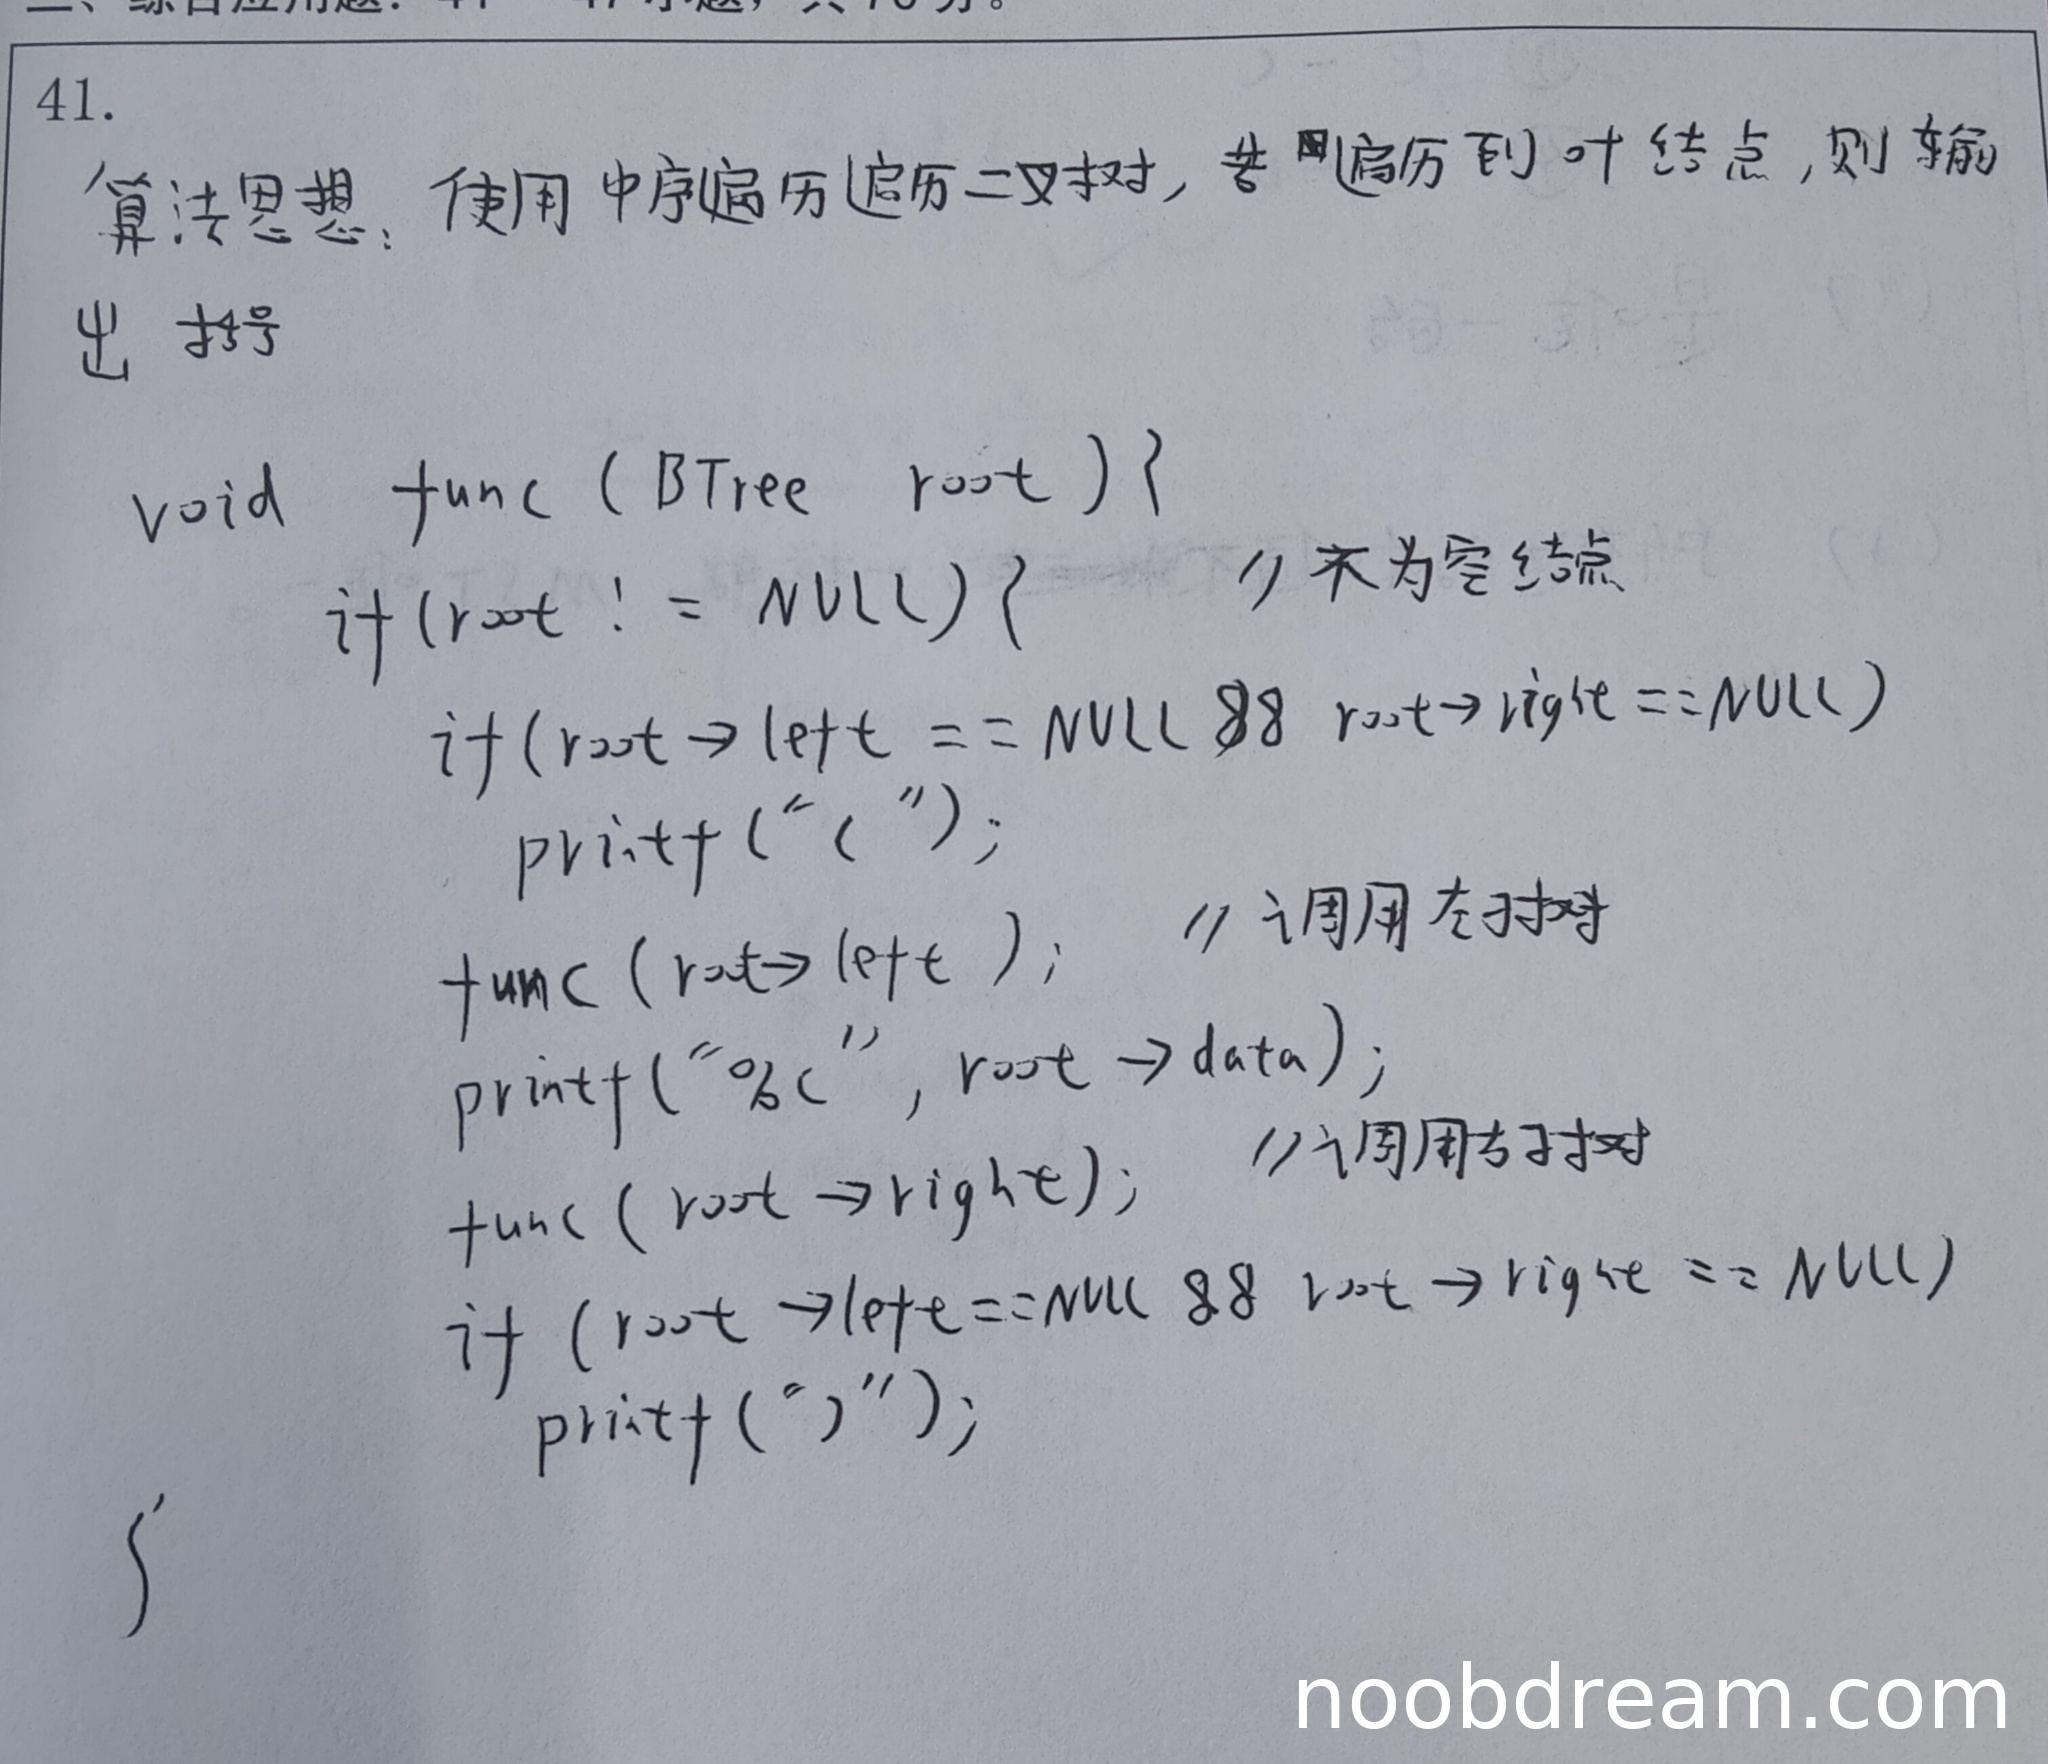 二、综合应用题：41～47小题，共70分。
41.
算法思想：使用中序遍历遍历二叉树，若遍历到叶结点，则输
出 括号
void func (BTree root){
if(root != NULL){ //不为空结点
if(root→left == NULL && root→right == NULL)
printf("(");
func(root→left); //调用左子树
printf("%c", root→data);
func(root→right); //调用右子树
if (root→left == NULL && root→right == NULL)
printf(")");
}
noobdream.com